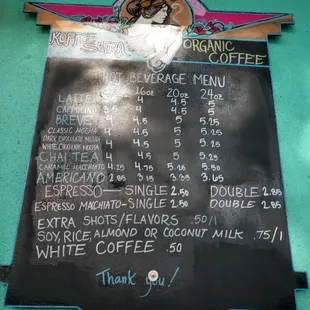 KOFFEE
ORGANIC
COFFEE
HOT BEVERAGE MENU
16oz 20oz 24oz
LATTE 4 4.5 5
CAPPUCINO 4 4.5 5
BREVE 4 4.5 5 5.25
CLASSIC MOCHA 4 4.5 5 5.25
DARK CHOCOLATE MOCHA 4 4.5 5 5.25
WHITE CHOCOLATE MOCHA 4 4.5 5 5.25
CHAI TEA 4 4.5 5 5.25
CARAMEL MACCHIATO 4.25 4.75 5.25 5.50
AMERICANO 2.85 3.15 3.35 3.65
ESPRESSO — SINGLE 2.50 DOUBLE 2.85
ESPRESSO MACCHIATO - SINGLE 2.50 DOUBLE 2.85
EXTRA SHOTS/FLAVORS .50/1
SOY, RICE, ALMOND OR COCONUT MILK .75/1
WHITE COFFEE .50
Thank you!